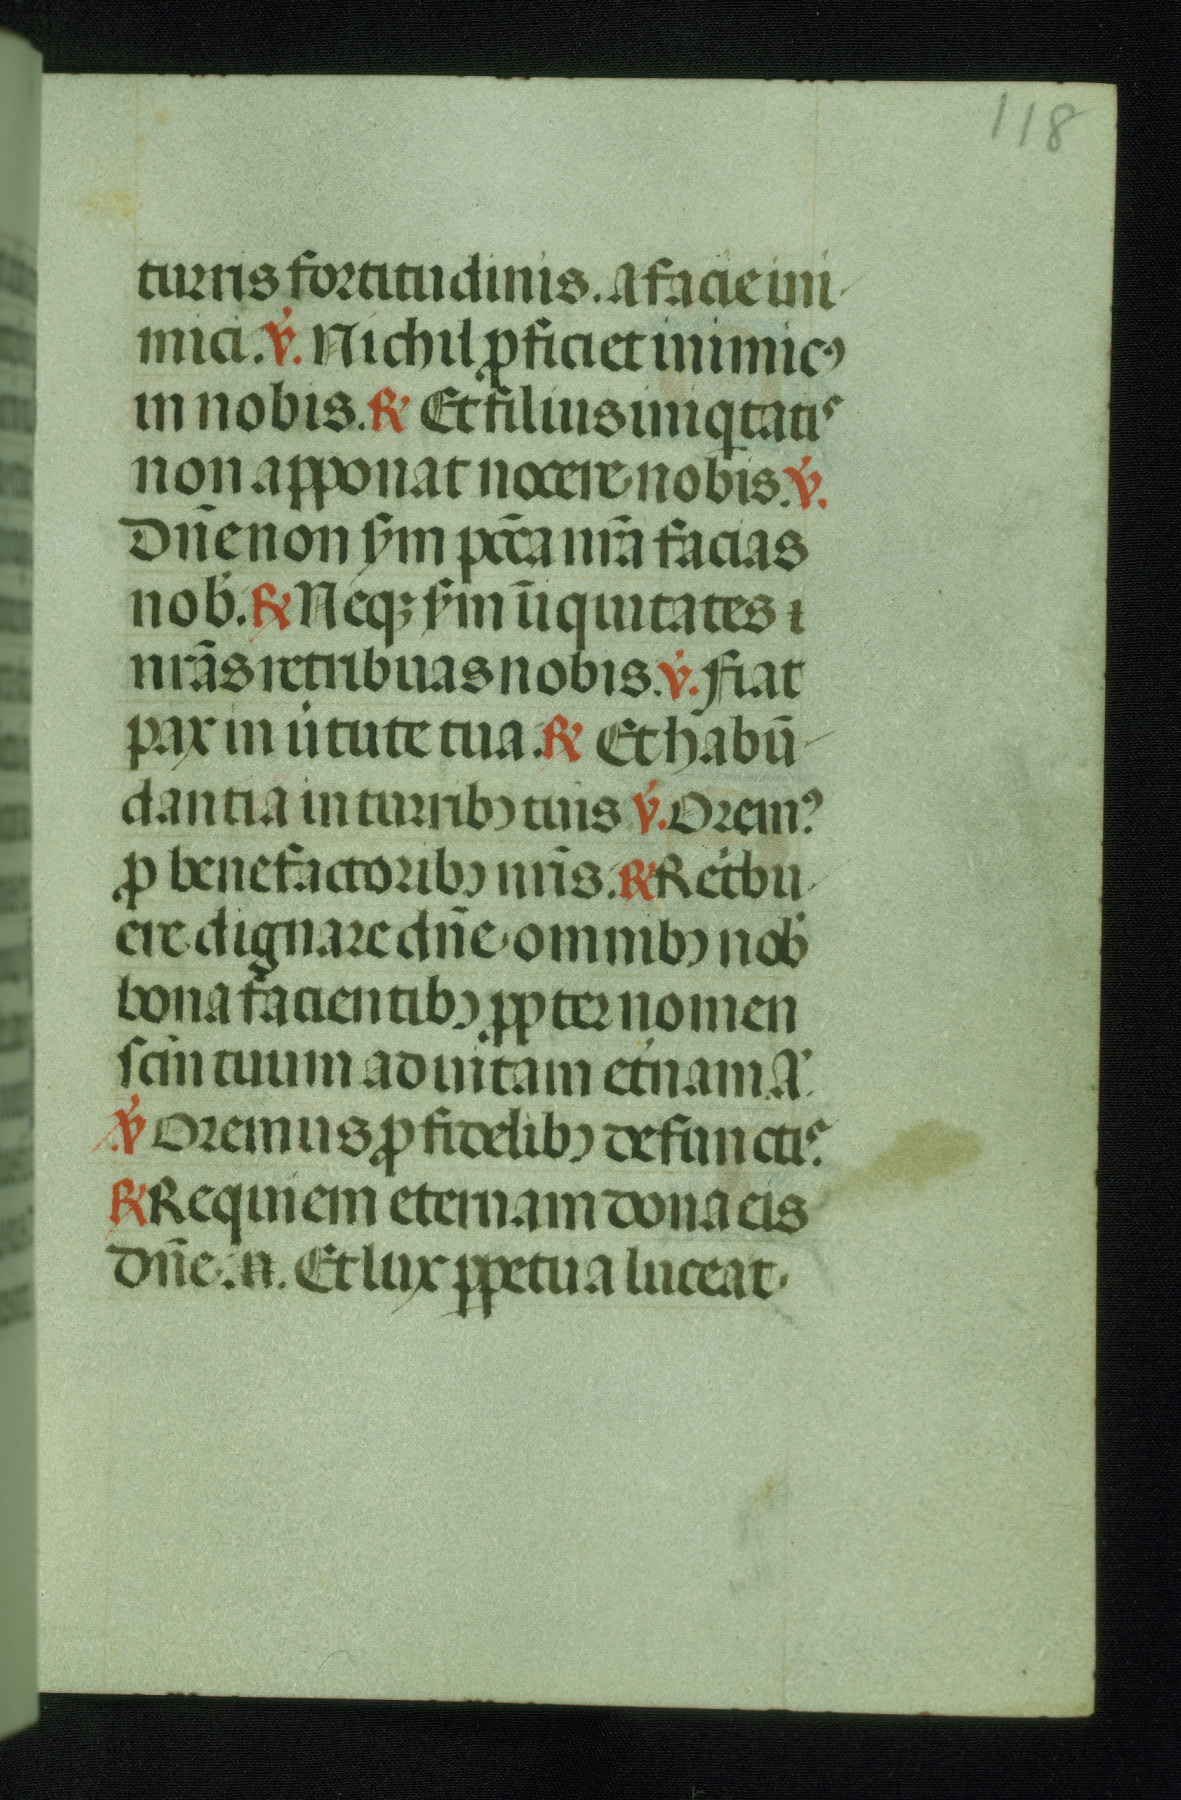 118
turris fortitudinis. A facie ini
mici. ℣. Nichil ꝓficiet inimicꝰ
in nobis. ℟ Et filius iniqtatis
non apponat nocere nobis. ℣.
Dn̄e non s̄m pc̄ca nr̄a facias
nob̄. ℟ Neqꝫ s̄m īiquitates i
nr̄as retribuas nobis. ℣. Fiat
pax in u̇tute tua. ℟ Et habū
dantia in turribꝫ tuis ℣. Oremꝰ
ꝓ benefactoribꝫ nr̄is. ℟ Reṫbu
ere dignare dn̄e omnibꝫ nob̄
bona facientibꝫ ꝓpter nomen
scm̄ tuum ad uitam eṫnam A.
℣ Oremus ꝓ fidelibꝫ defunctis.
℟ Requiem eternam dona eis
dn̄e. n. Et lux ꝑpetua luceat